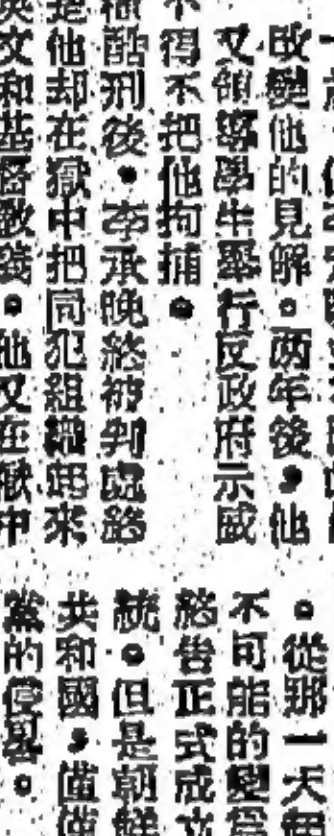 改變他的見解。两年後，他
又領導學生舉行反政府示威
得不把他拘捕。
酷刑後，李承晚終被判處終
他却在獄中把同犯組織起來
文和基督教義。他又在獄中
。從那一天
不可能的變
終告正式成立
統。但是朝鮮
共和國，僅僅
黨的